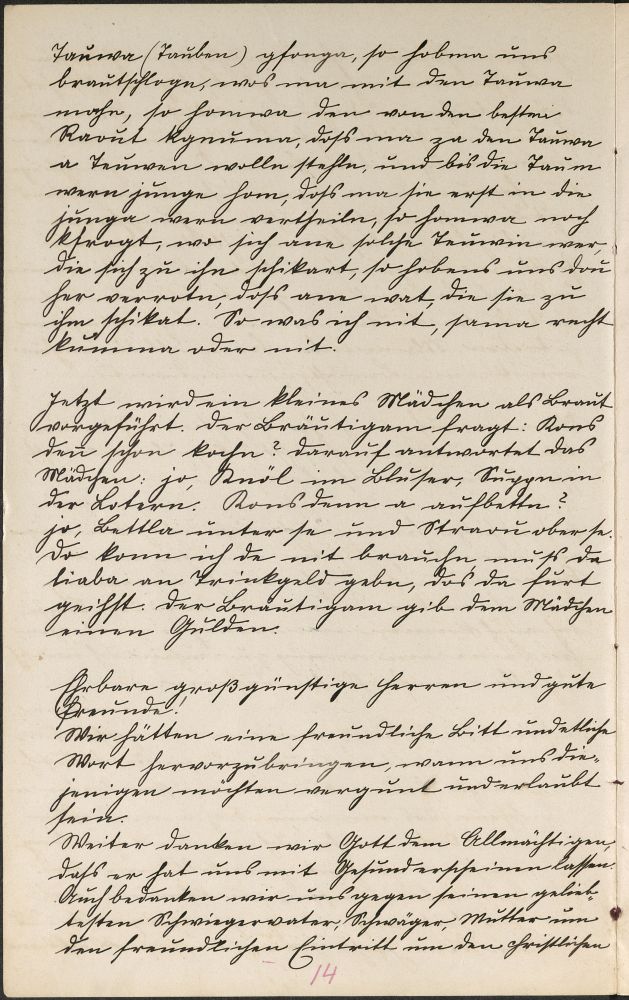 Tauwa (Tauben) gfonga, so hobma uns
brautschloga, wos ma mit den Tauwa
mochn, so homwa den von den besten
Raout kgnumma, doß ma za den Tauwa
a Teuwen wolln stehln, und bis die Taum
wern junge hom, doß ma sie erst in die
junga wern vertheiln, so homwa noch
kfrogt, wo sich ane solche Teuwin wer,
die sich zu ihn schikart, so hobens uns dou
her verrotn, doß ane wat, die sie zu
ihm schikat. So was ich nit, sama recht
kumma oder nit.
Jetzt wird ein kleines Mädchen als Braut
vorgeführt. Der Bräutigam fragt: Kons
den schon kochn? Darauf antwortet das
Mädchen: jo, Knöl im Bluser, Suppn in
der Lotern. Kons denn a aufbettn?
jo, Bettla unter se und Straou ober se.
Do konn ich de nit brauchn, muß da
liaba an Trinkgeld gebn, das da furt
geihst. Der Bräutigam gib dem Mädchen
einen Gulden.
Ehrbare großgünstige Herren und gute
Freunde!
Wir hätten eine freundliche Bitt und etliche
Wort hervorzubringen, wann uns die-
jenigen möchten vergunt und erlaubt
sein.
Weiter danken wir Gott dem Allmächtigen,
daß er hat uns mit Gesund erscheinen lassen.
Auch bedanken wir uns gegen seinen gelieb-
testen Schwiegervater, Schwäger, Mutter um
den freundlichen Eintritt um den christlichen
14